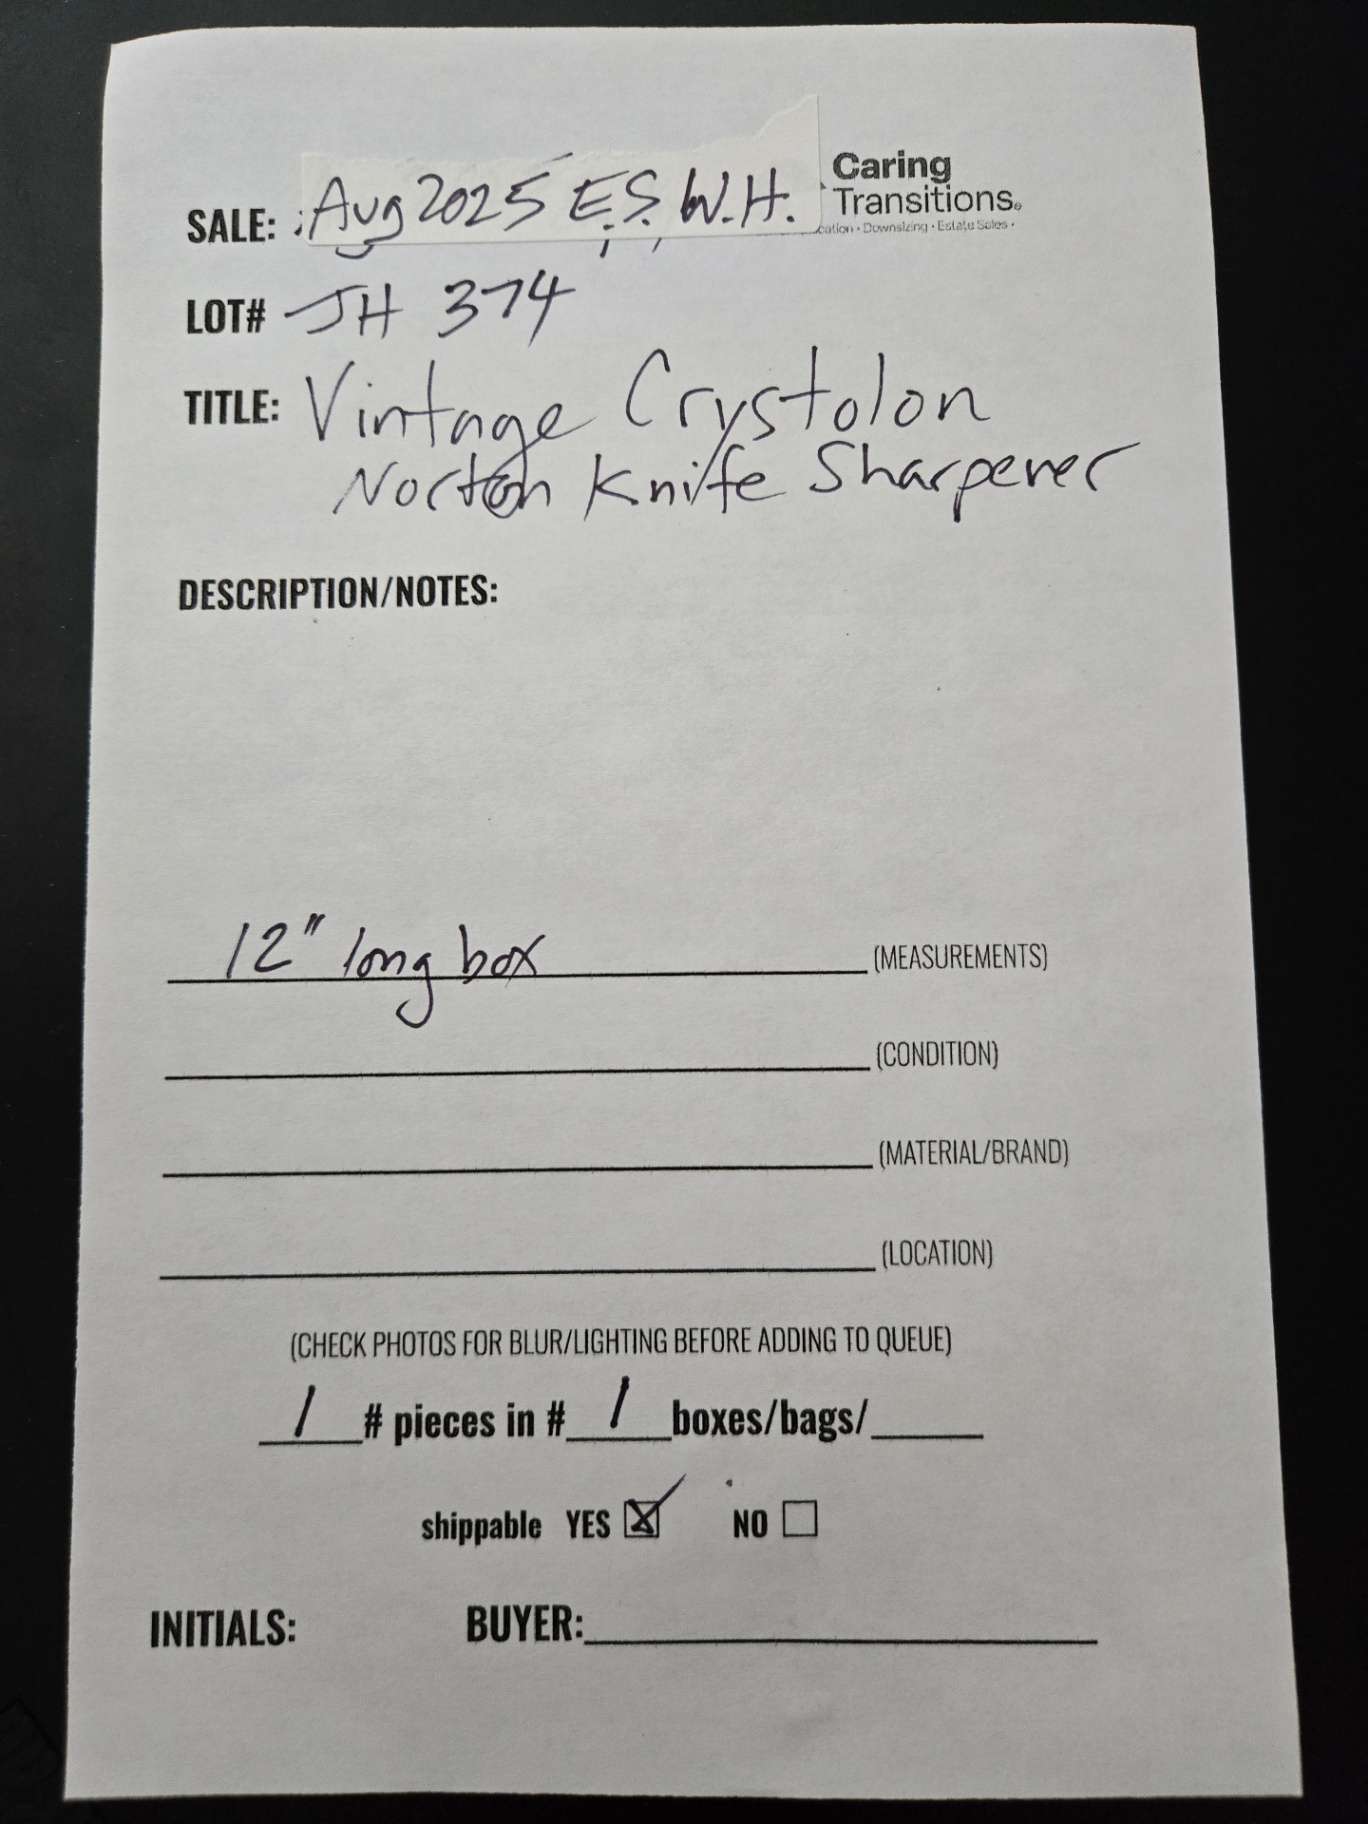 SALE: Aug 2025 E.S. W.H.
Caring
Transitions
cation • Downsizing • Estate Sales •
LOT# JH 374
TITLE: Vintage Crystolon
Norton Knife Sharpener
DESCRIPTION/NOTES:
12" long box (MEASUREMENTS)
(CONDITION)
(MATERIAL/BRAND)
(LOCATION)
(CHECK PHOTOS FOR BLUR/LIGHTING BEFORE ADDING TO QUEUE)
1 # pieces in # 1 boxes/bags/
shippable YES NO
INITIALS: BUYER: